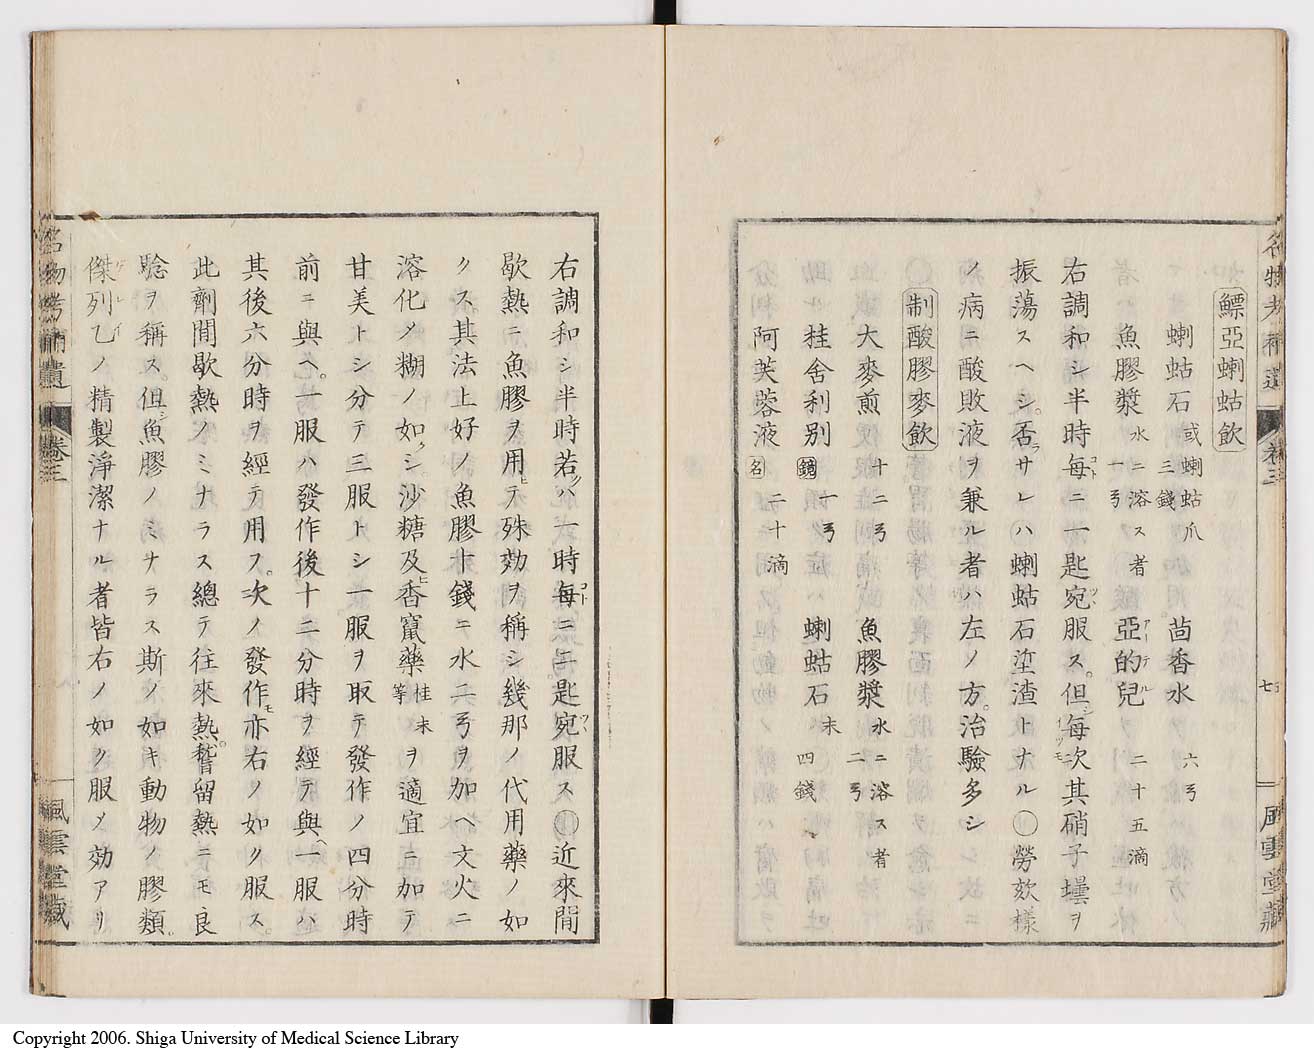 名物考補遺 卷三 七 風雲堂藏
鰾亞蝲蛄飲
蝲蛄石 或蝲蛄爪 三錢 茴香水 六ㄢ
魚膠漿 水ニ溶ス者 一ㄢ 亞的兒 アーテル 二十五滴
右調和シ半時每ニ一匙宛服ス。但シ每次其硝子壜ヲ
振蕩スヘシ。否ラサレハ蝲蛄石埿渣トナル 勞効樣
ノ病ニ酸敗液ヲ兼ル者ハ左ノ方。治驗多シ
制酸膠麥飲
大麥煎 十二ㄢ 魚膠漿 水ニ溶ス者 二ㄢ
桂舍利別 鏑 一ㄢ 蝲蛄石 末 四錢
阿芙蓉液 名 二十滴
右調和シ半時若クハ一時每ニ二匙宛服ス 近來間
歇熱ニ魚膠ヲ用ヒテ殊効ヲ稱シ幾那ノ代用藥ノ如
クス。其法上好ノ魚膠十錢ニ水二ㄢヲ加ヘ文火ニ
溶化メ糊ノ如クシ沙糖及ヒ香竄藥 桂末等 ヲ適宜ニ加テ
甘美トシ分テ三服トシ一服ヲ取テ發作ノ四分時
前ニ與ヘ。一服ハ發作後十二分時ヲ經テ與ヘ一服ハ
其後六分時ヲ經テ用フ。次ノ發作モ亦右ノ如ク服ス。
此劑間歇熱ノミナラス總テ往來熱。瞀留熱ニモ良
驗ヲ稱ス。但シ魚膠ノミナラス斯ノ如キ動物ノ膠類。
傑列乙ノ精製淨潔ナル者皆右ノ如ク服メ効アリ
名物考補遺 卷三 風雲堂藏
Copyright 2006. Shiga University of Medical Science Library